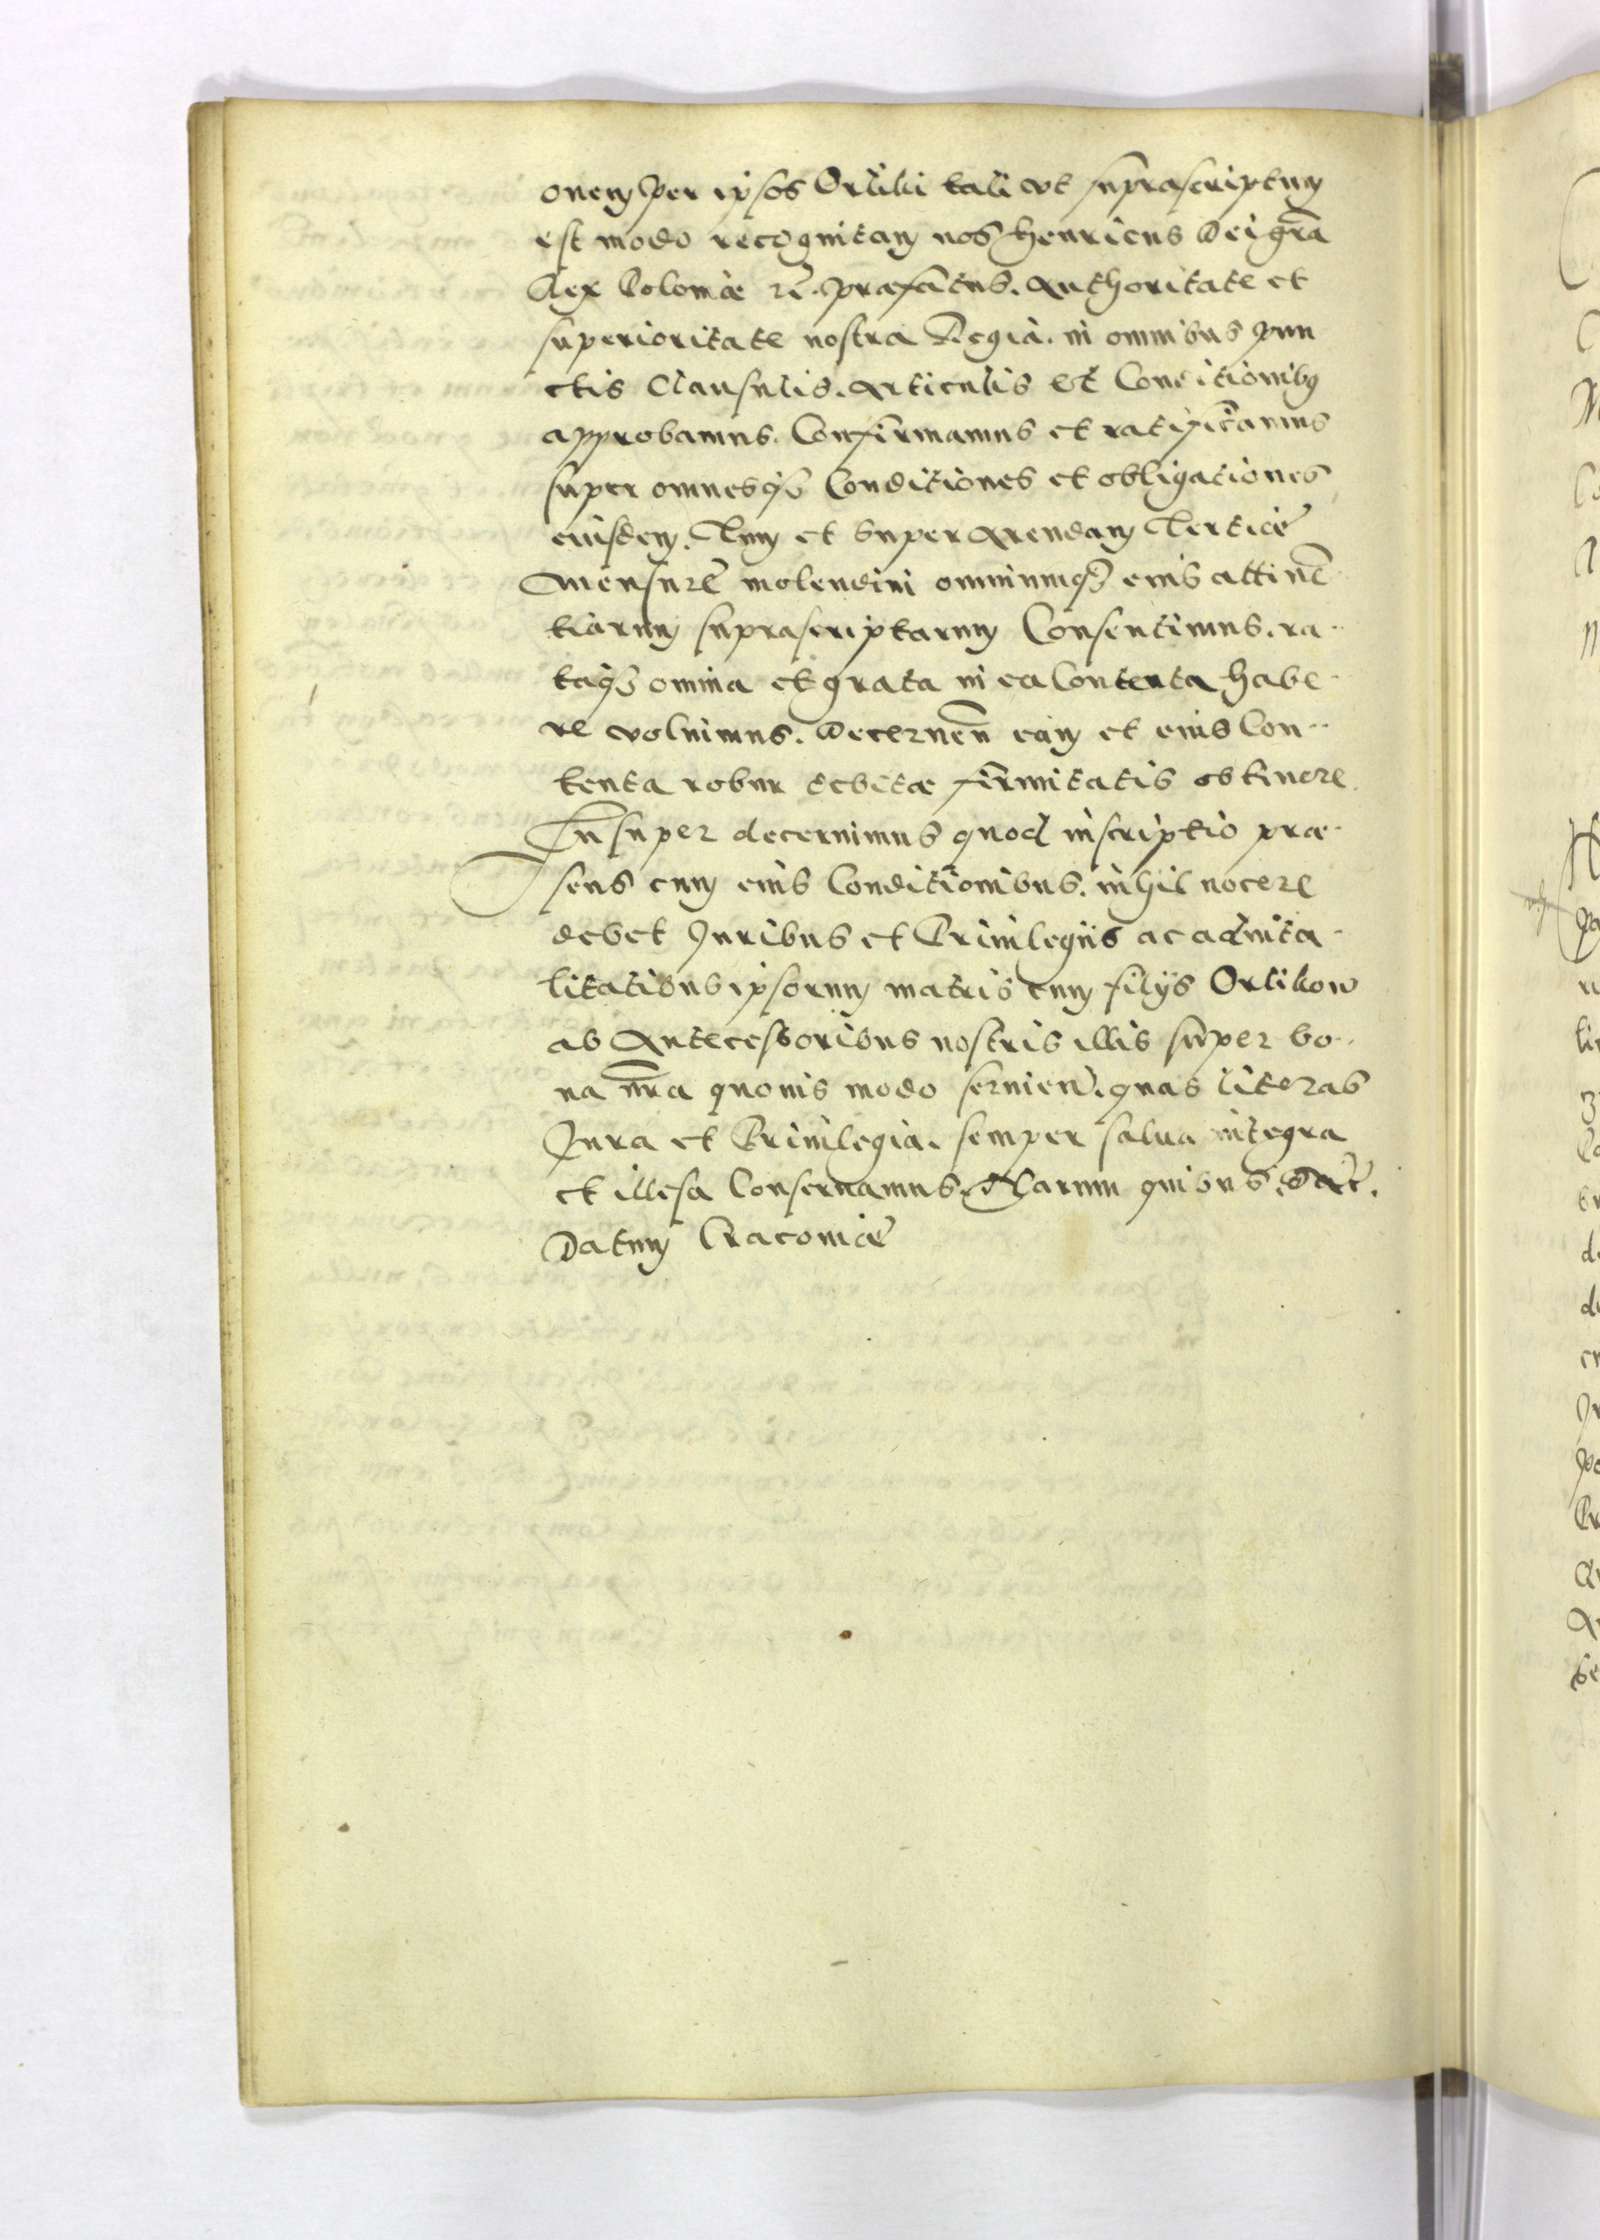 onem per ipsos Orliki tali vt suprascriptum
est modo recognitam nos Henricus Dei gra
Rex Poloniæ etc. præfatus. Authoritate et
superioritate nostra Regia. in omnibus pun
ctis Clausulis. Articulis et Conditionibus
approbamus. Confirmamus et ratificamus
super omnesq3 Conditiones et obligationes
eiusdem. Tum et super Arendam Tertiæ
Mensuræ molendini omniumq3 eius attinen
tiarum suprascriptarum Consentimus. ra-
taq3 omnia et grata in ea Contenta habe-
re volumus. Decernen eam et eius Con-
tenta robur debitæ firmitatis obtinere.
Insuper decernimus quod inscriptio præ-
sens cum eius Conditionibus. nihil nocere
debet Iuribus et Priuilegiis ac aduita-
litatibus ipsorum matris cum filijs Orlikow
ab Antecessoribus nostris illis super bo-
na nra quouis modo seruien. quas literas
Iura et Priuilegia. semper salua integra
et illesa Conseruamus. Harum quibus etc.
Datum Cracouiæ